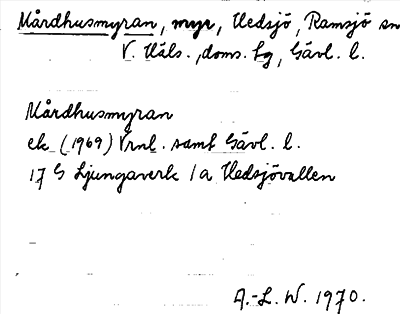 Mårdhusmyran, myr, Hedsjö, Ramsjö sn
V. Häls., doms. Lg, Gävl. l.
Mårdhusmyran
ek (1969) Vrnl. samt Gävl. l.
17 G Ljungaverk 1a Hedsjövallen
A.-L. W. 1970.